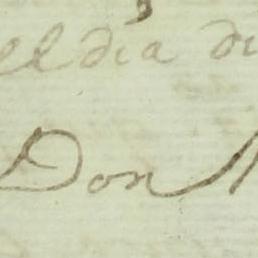 el dia di
Don